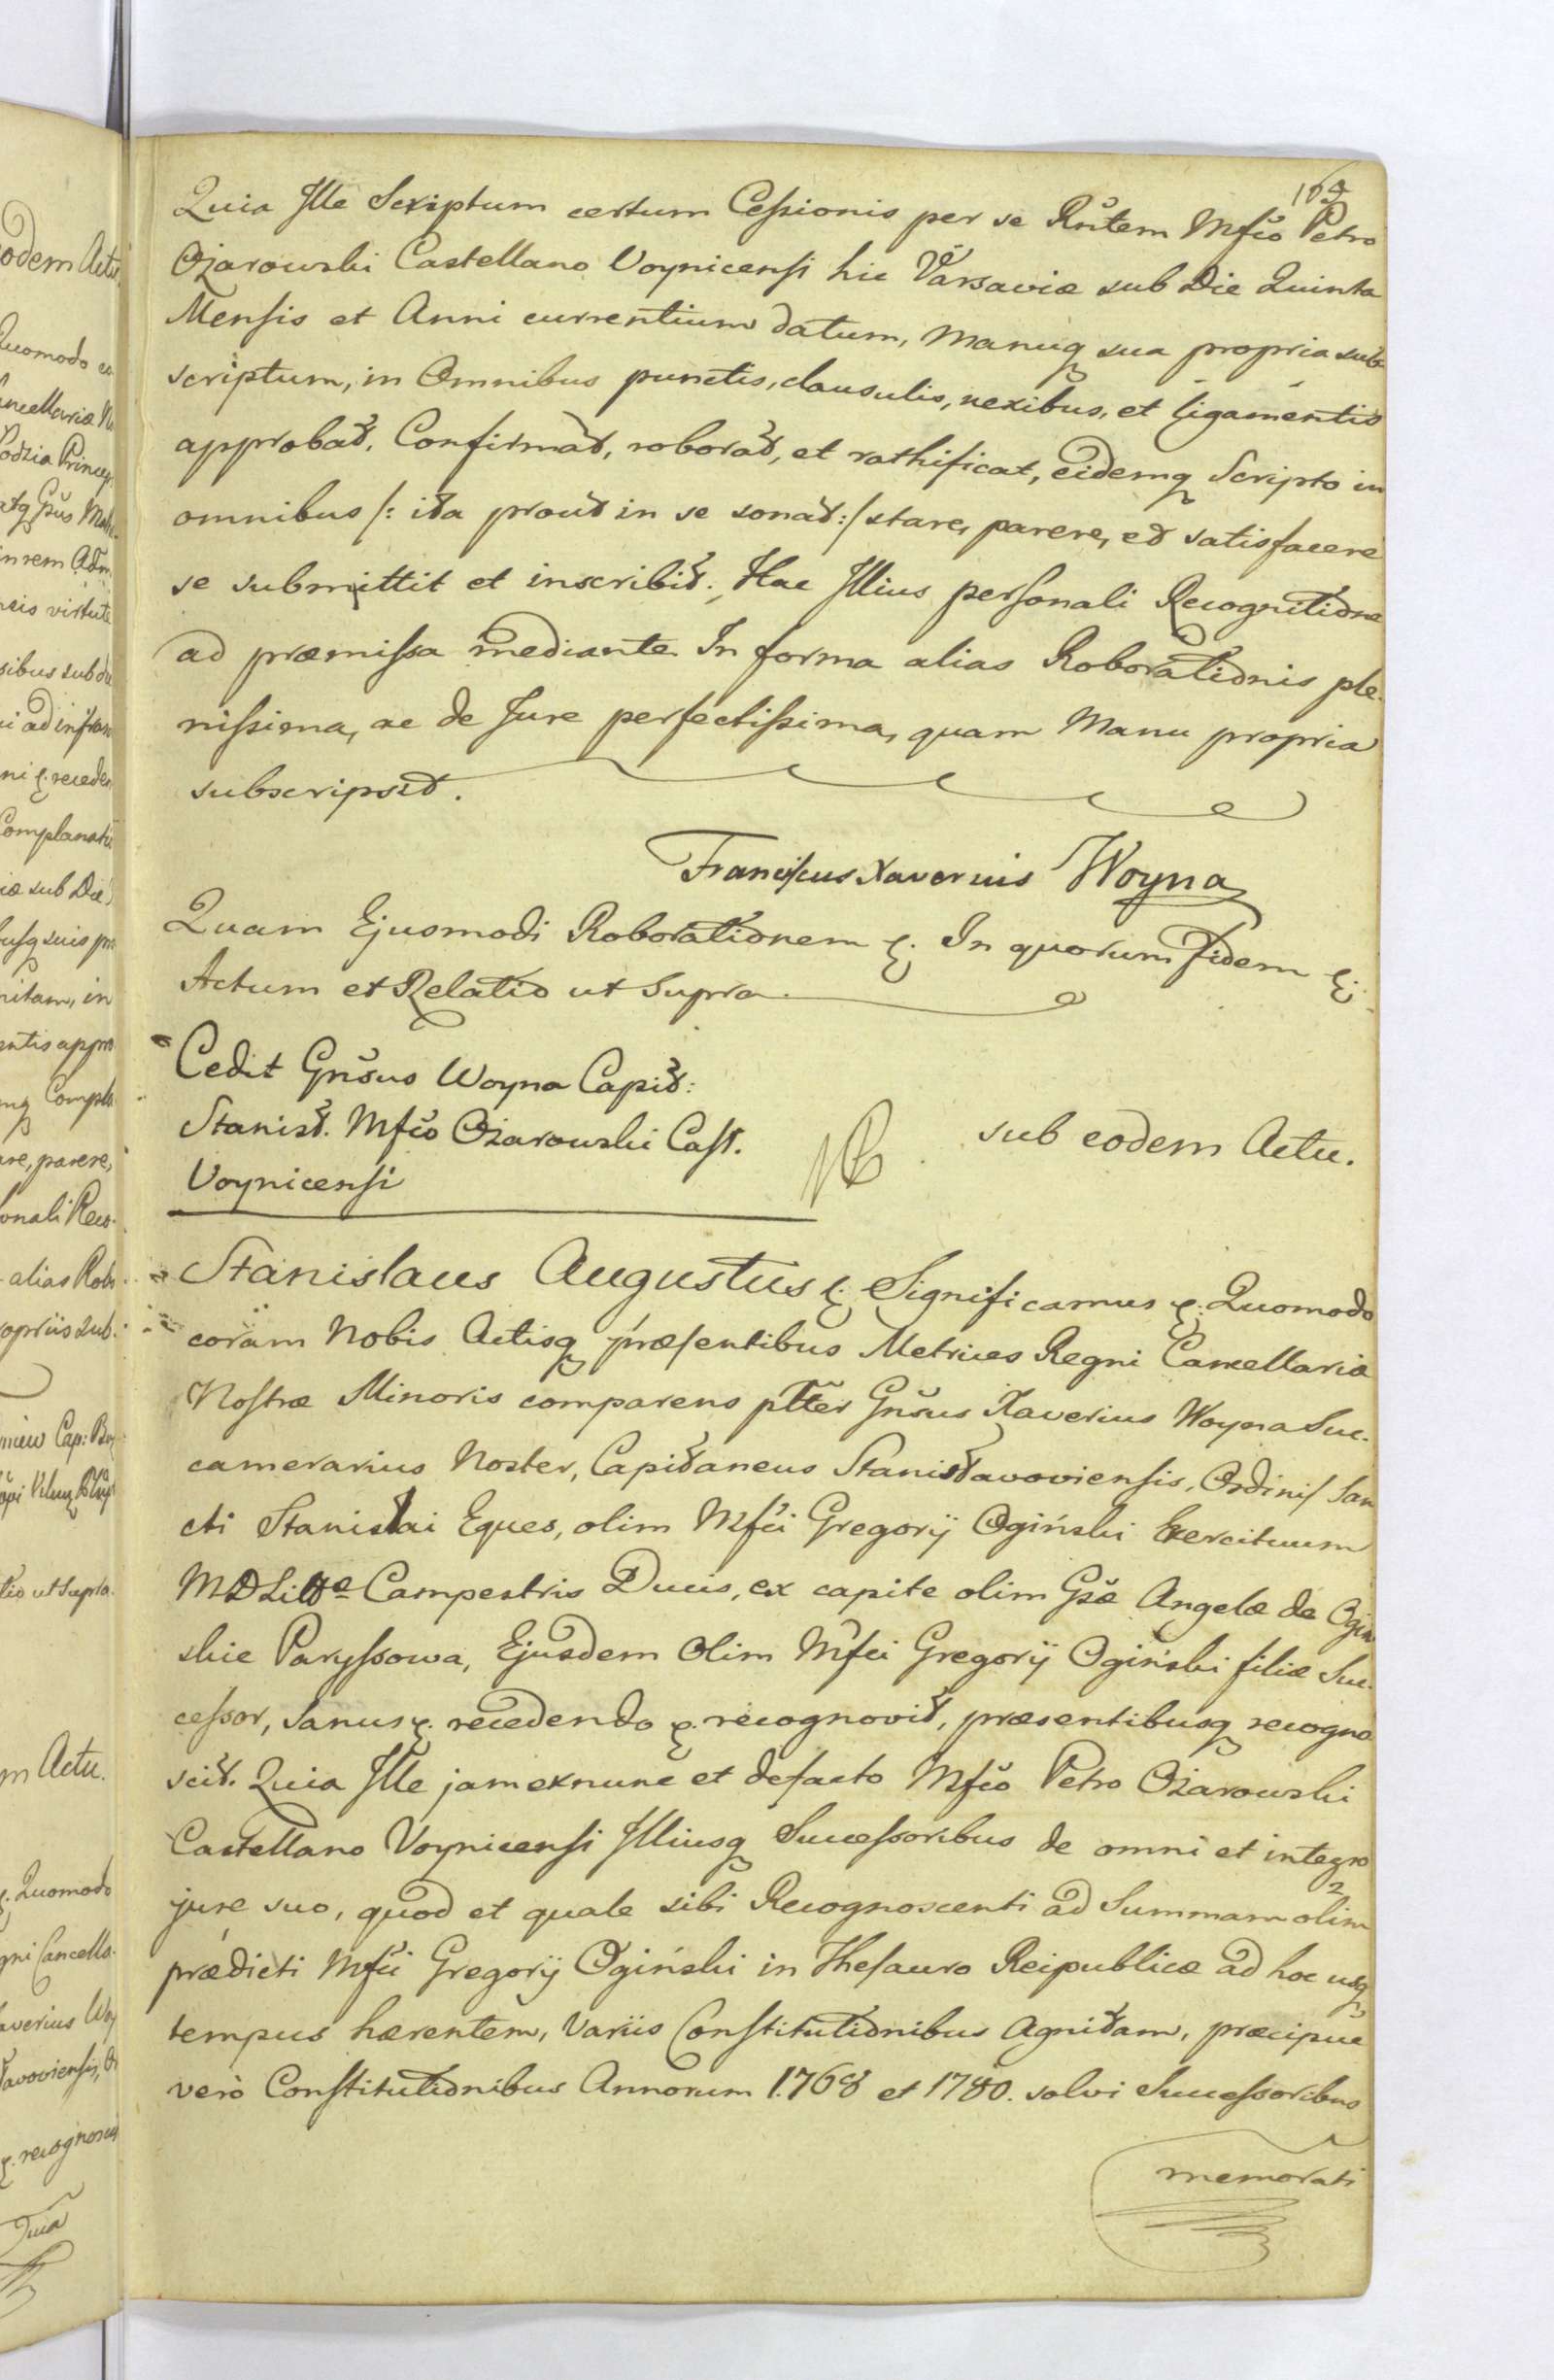 163
Quia Ille Scriptum certum Cessionis per se Rñtem Mfco Petro
Ożarowski Castellano Voynicensi hic Varsaviæ sub Die Quinta
Mensis et Anni currentium datum, manuq sua propria sub-
scriptum, in Omnibus punctis, clausulis, nexibus, et ligamentis
approbat, Confirmat, roborat, et rathificat, eidemq Scripto in
omnibus /: ita prout in se sonat :/ stare, parere, et satisfacere
se submittit et inscribit. Hac Illius personali Recognitione
ad præmissa mediante In forma alias Roborationis ple-
nissima, ac de Jure perfectissima, quam Manu propria
subscripsit.
Franciscus Xaverius Woyna
Quam Ejusmodi Roborationem &. In quorum Fidem &.
Actum et Relatio ut Supra.
Cedit Gnsus Woyna Capit:
Stanisł. Mfco Ożarowski Cast.
Voynicensi
sub eodem Actu.
Stanislaus Augustus &. Significamus &. Quomodo
coram Nobis Actisq præsentibus Metrices Regni Cancellariæ
Nostræ Minoris comparens pltter Gnsus Xaverius Woyna Suc-
camerarius Noster, Capitaneus Stanisławoviensis, Ordinis San
cti Stanisłai Eques, olim Mfci Gregorij Ogiński Exercituum
MDLittæ Campestris Ducis, ex capite olim Gsæ Angelæ de Ogin
skie Paryssowa, Ejusdem Olim Mfci Gregorij Ogiński filiæ Suc-
cessor, Sanus &. recedendo &. recognovit, præsentibusq recogno
scit. Quia Ille jam exnunc et defacto Mfco Petro Ożarowski
Castellano Voynicensi Illiusq Successoribus de omni et integro
jure suo, quod et quale sibi Recognoscenti ad Summam olim
prædicti Mfci Gregorij Ogiński in Thesauro Reipublicæ ad hoc usq
tempus hærentem, Variis Constitutionibus Agnitam, præcipue
verò Constitutionibus Annorum 1768 et 1780. solvi Successoribus
memorati